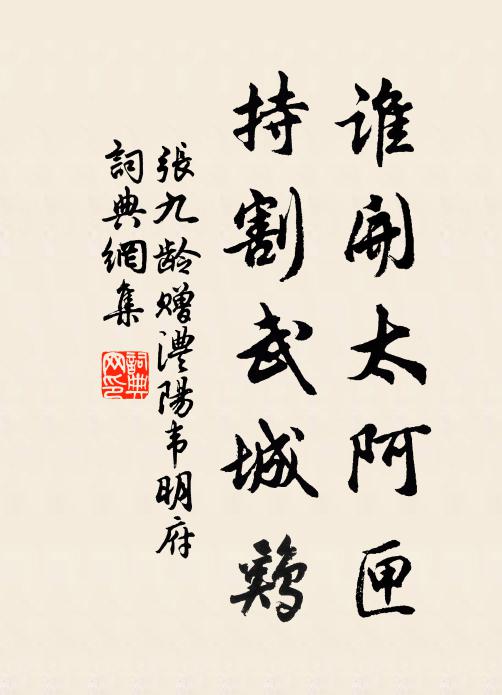 谁開太阿匣
持割武城鷄
張九龄赠澧陽韦明府
詞典網集
詞典網印